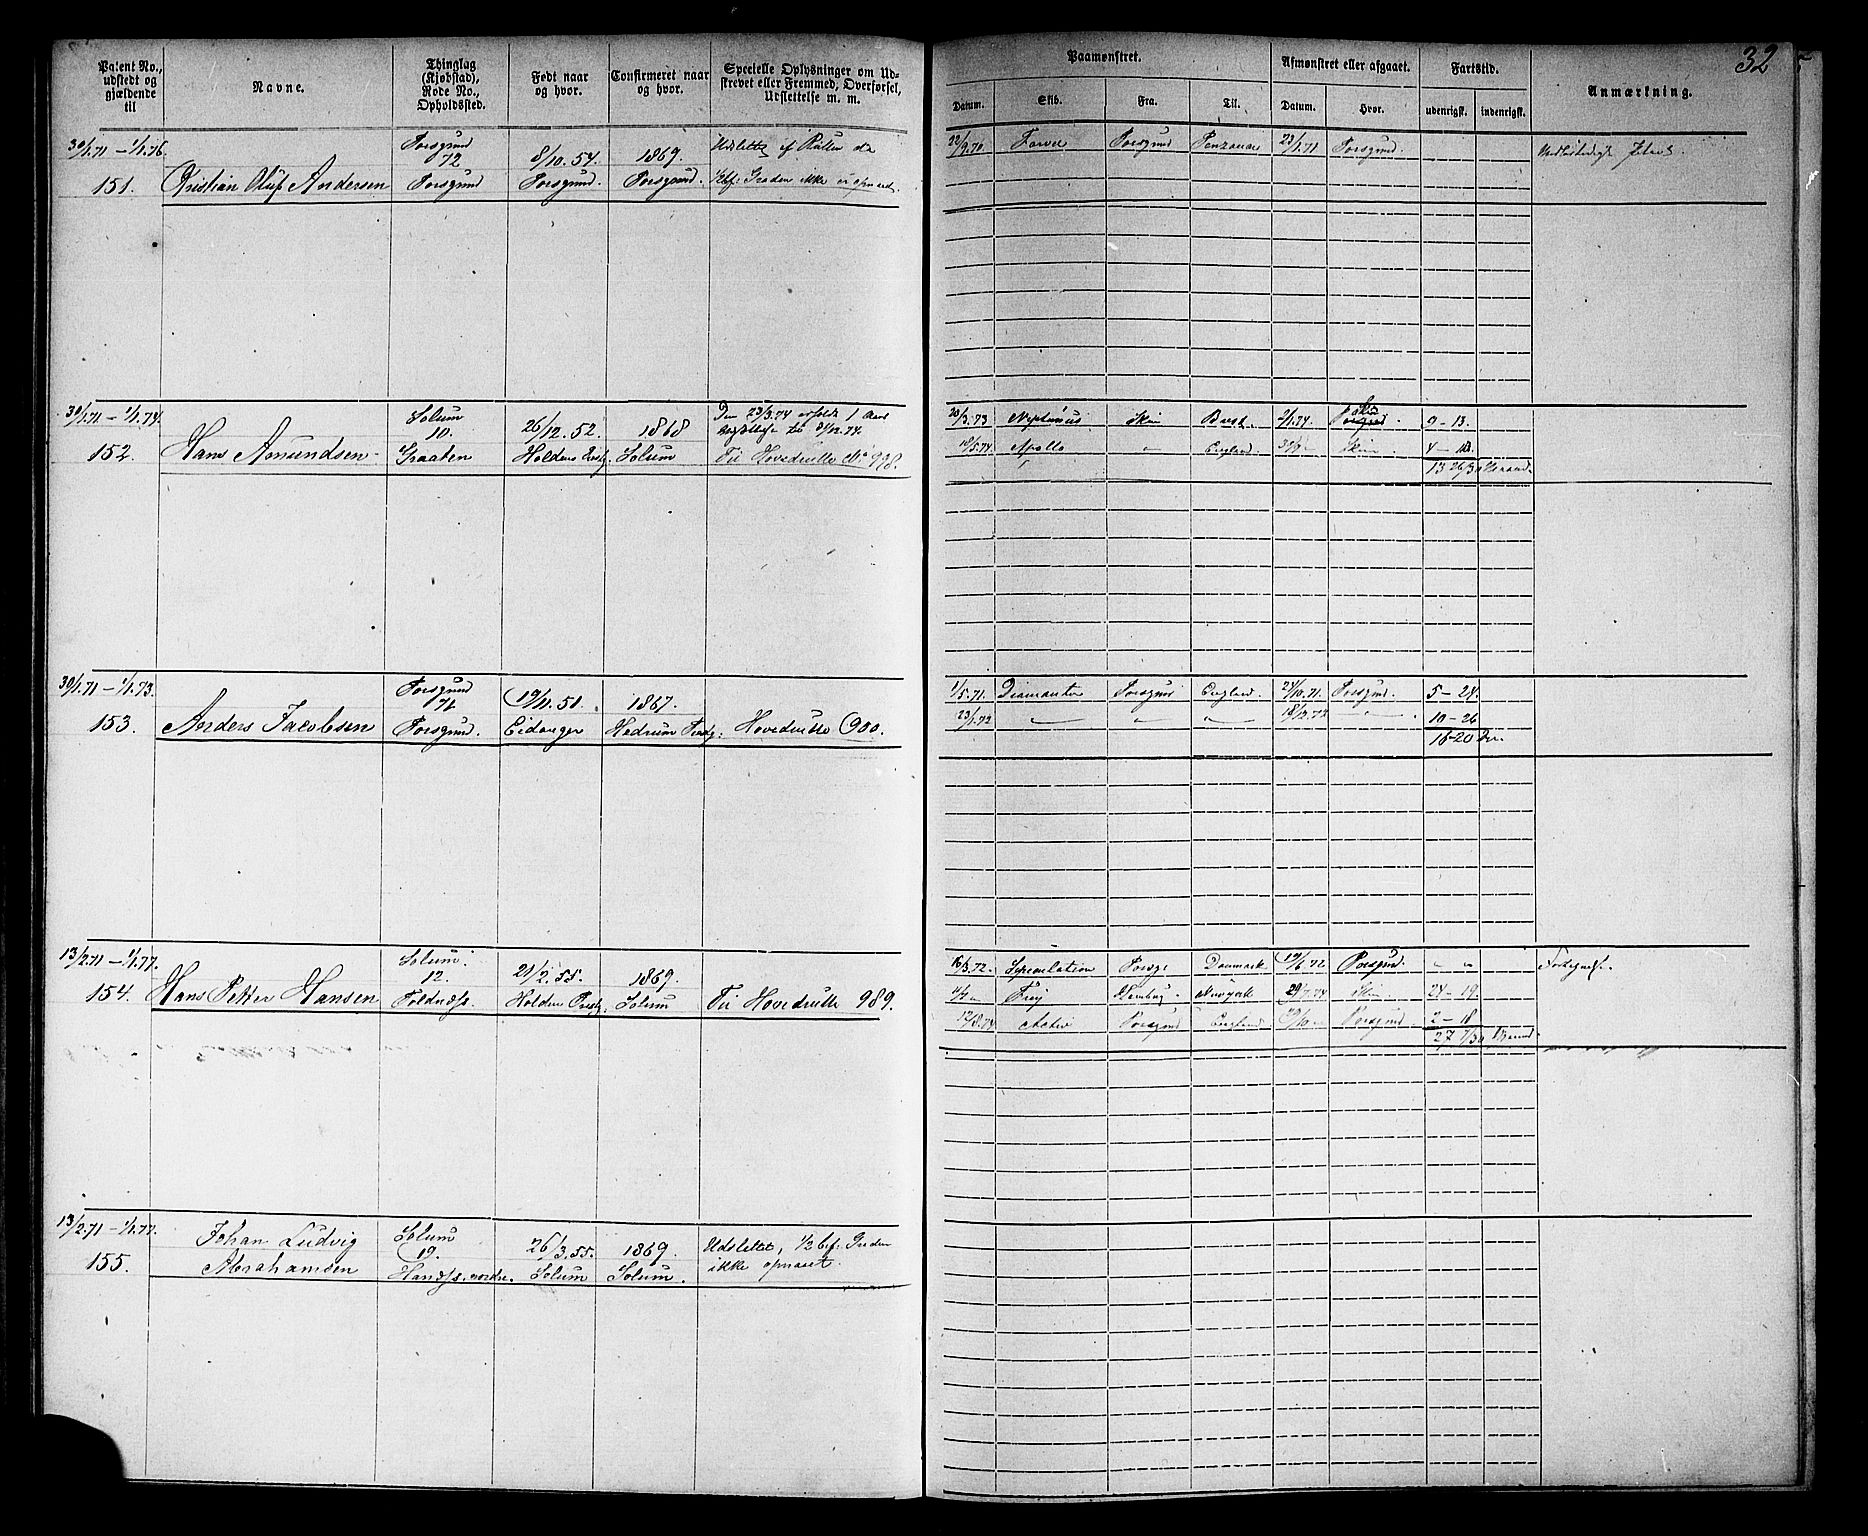 32
Patent No., udstedt og gjældende til
Navne.
Thinglag (Kjøbstad), Rode No., Opholdssted.
Født naar og hvor.
Confirmeret naar og hvor.
Specielle Oplysninger om Udskrevet eller Fremmed, Overførsel, Udslettelse m. m.
Paamønstret.
Afmønstret eller afgaaet.
Fartstid.
Anmærkning.
Datum. Skib. Fra. Til. Datum. Hvor. udenrigsk. indenrigsk.
30/1.71 – 1/1.76. Porsgrund 72 8/10.54. 1869. Udslettet af Rullen da
151. Christian Oluf Andersen Porsgrund Porsgrund. Porsgrund. 1/2 bef. Graden ikke er opnaaet.
22/9.70. Farvel Porsgrund Penzance 23/1.71 Porsgrund.
30/1.71 – 1/1.74. Solum 10. 26/12.52. 1868 Den 23/3.74 1 Aars til 31/12.74.
152. Hans Amundsen Graaten Holdens Prstg. Solum Til Hovedrulle No 978.
20/3.73 Neptunus Skien Brest. 2/1.74. Skien Porsgrund 9 – 13.
18/5.74 Apollo – England Skien. 4 –
13 26/30 Maaned.
30/1.71 – 1/1.73. Porsgrund 71 19/11.51. 1867.
153. Anders Jacobsen Porsgrund. Eidanger Hedrum Prstg. Hovedrulle 900.
1/5.71. Diamanten Porsgrund England. 24/10.71. Porsgrund. 5 – 24.
23/1.72 – – – 18/12.72 – 10 – 26
16–20 Dr.
13/2.71 – 1/1.77. Solum 12. 21/2.55. 1869.
154. Hans Petter Hansen Toldnæss. Holden Prstg. Solum Til Hovedrulle 989.
16/3.72. Speculation Porsgr Danmark 19/6.72 Porsgrund. – –
Frey Newyork 29/7.74 Skien. 24 – 19.
12/8.74 Activ Porsgrund England Porsgrund 2 – 18
27 7/30 Maaned
13/2.71 – 1/1.77. Johan Ludvig Solum 19. 26/3.55. 1869. Udslettet, 1/2 bef. Graden
155. Abrahamsen Hanæss. nordre. Solum Solum. ikke opnaaet.